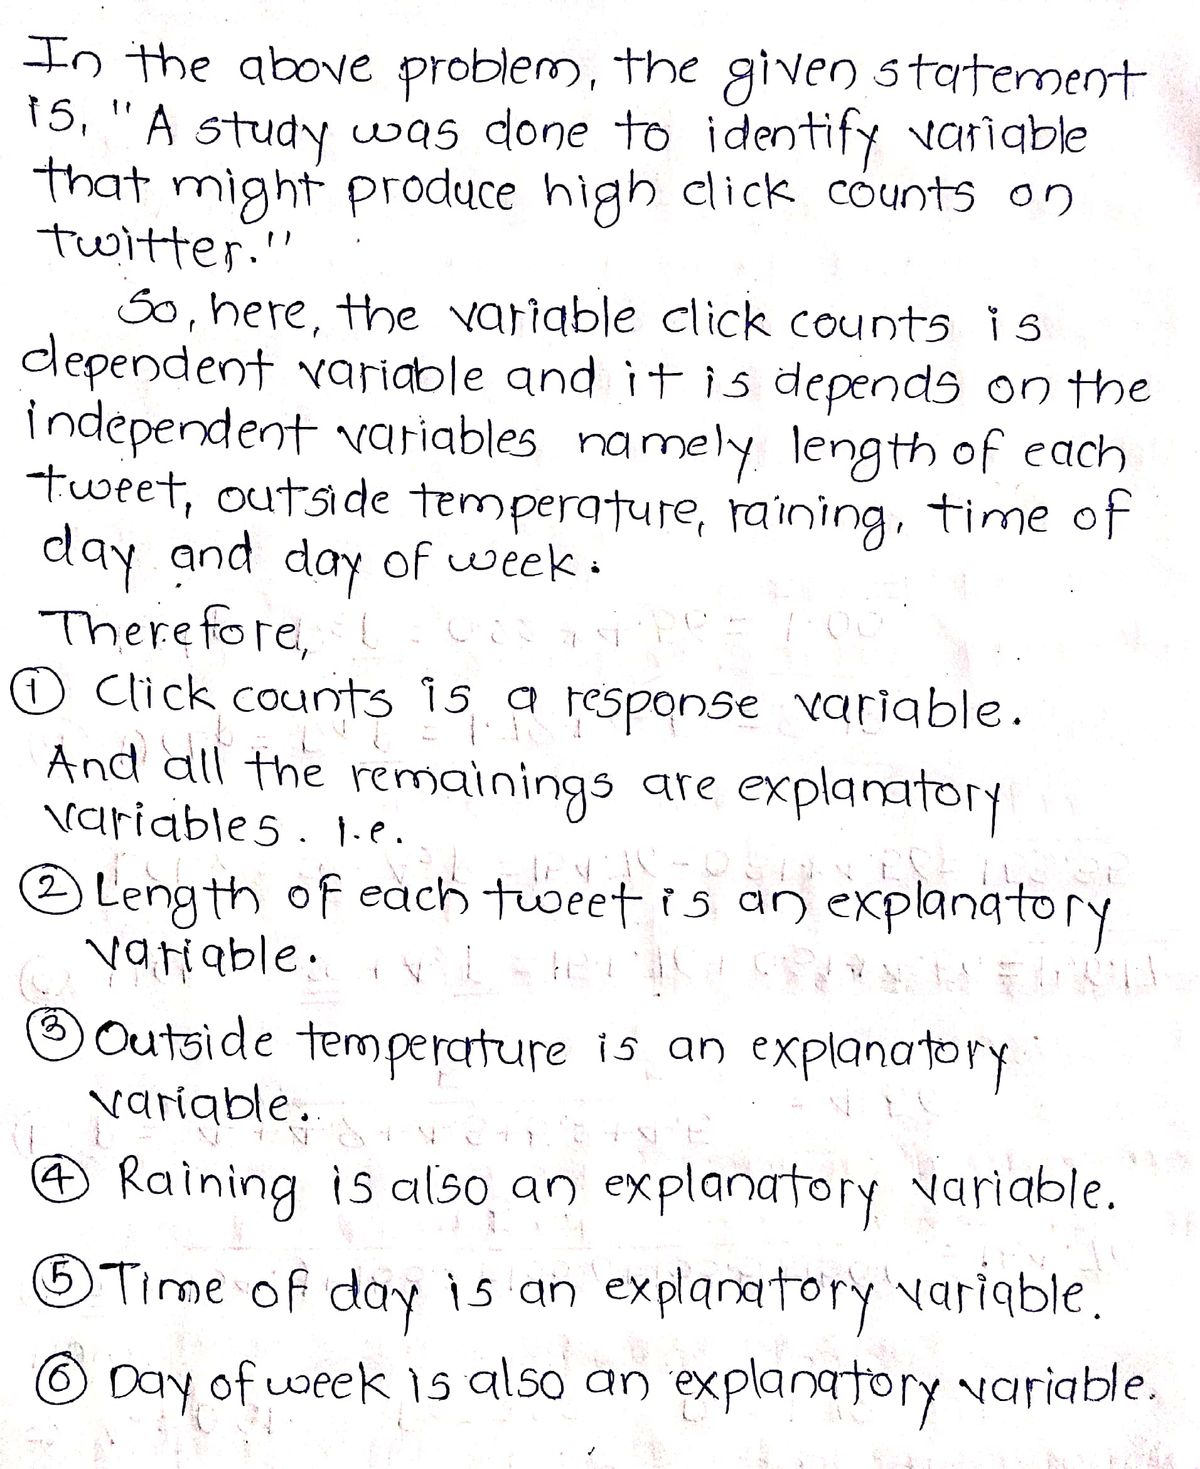 In the above problem, the given statement
is, "A study was done to identify variable
that might produce high click counts on
twitter."
So, here, the variable click counts is
dependent variable and it is depends on the
independent variables namely length of each
tweet, outside temperature, raining, time of
day and day of week.
Therefore,
① Click counts is a response variable.
And all the remainings are explanatory
variables. I.e.
② Length of each tweet is an explanatory
variable.
③ Outside temperature is an explanatory
variable.
④ Raining is also an explanatory variable.
⑤ Time of day is an explanatory variable.
⑥ Day of week is also an explanatory variable.